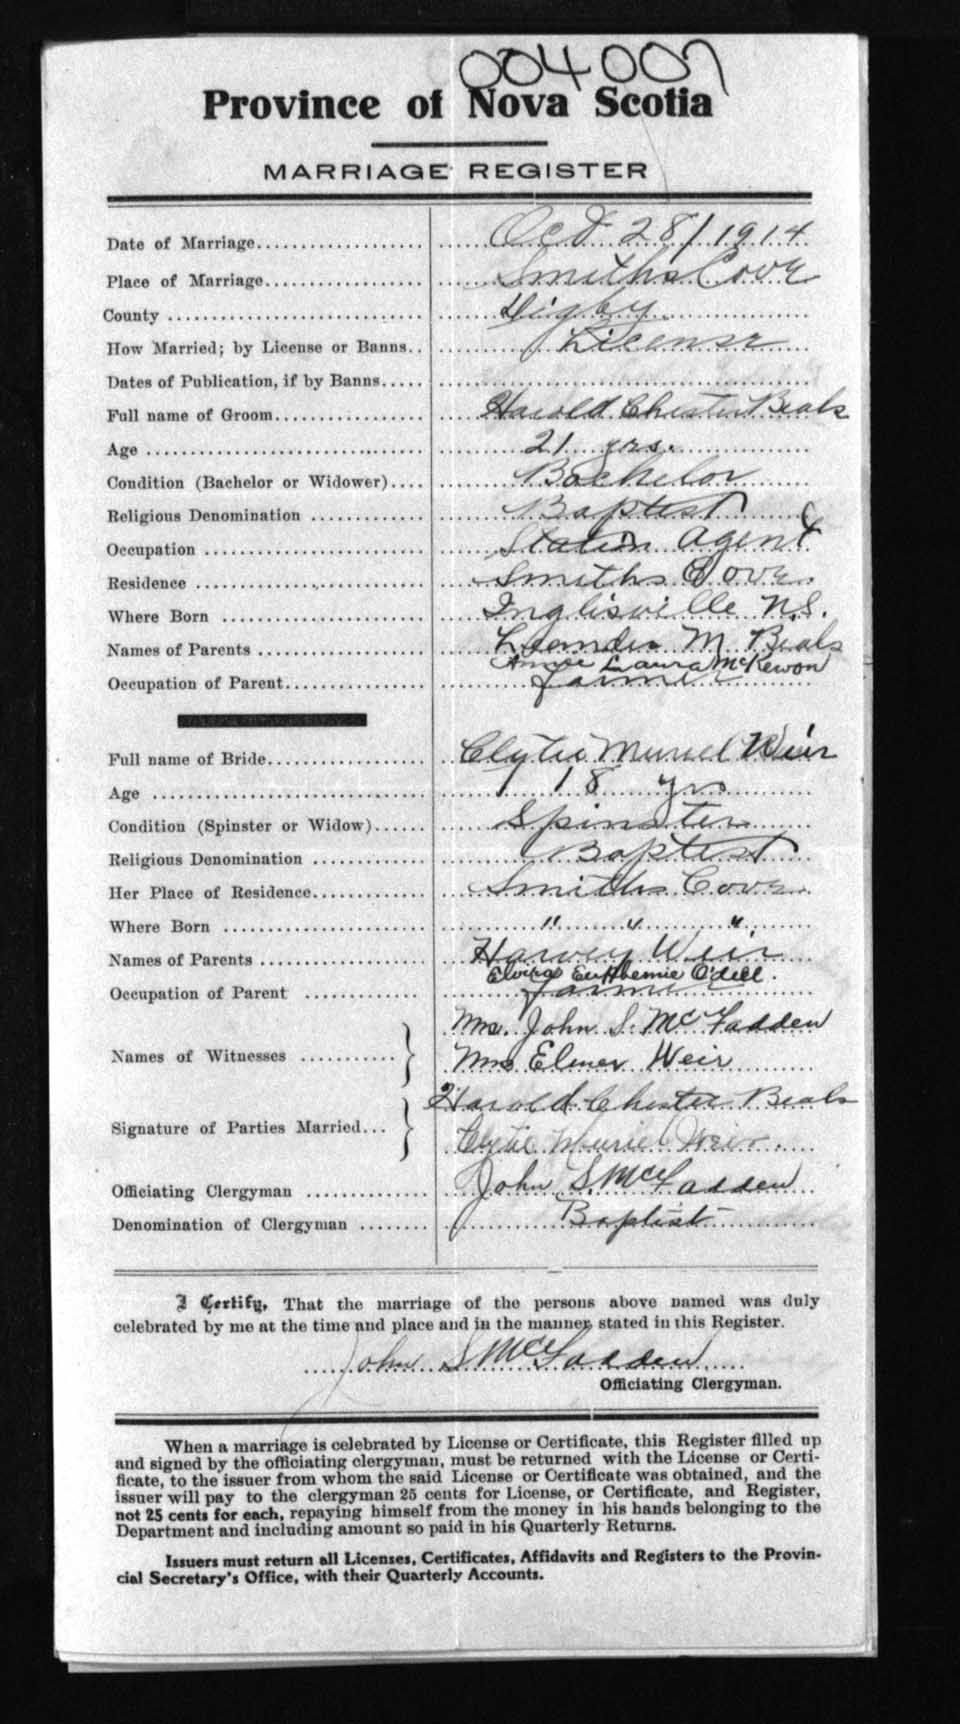 004007
Province of Nova Scotia
MARRIAGE REGISTER
Date of Marriage.................... Oct 28/1914
Place of Marriage................... Smiths Cove
County ............................. Digby
How Married; by License or Banns.. License
Dates of Publication, if by Banns.....
Full name of Groom.................. Harold Chester Beals
Age ................................ 21 yrs.
Condition (Bachelor or Widower).... Bachelor
Religious Denomination ............. Baptist
Occupation ......................... Station Agent
Residence .......................... Smiths Cove
Where Born ......................... Inglisville N.S.
Names of Parents ................... Leander M. Beals
Annie Laura McKewon
Occupation of Parent................ Farmer
Full name of Bride.................. Clytie Muriel Weir
Age ................................ 18 yrs
Condition (Spinster or Widow)...... Spinster
Religious Denomination ............. Baptist
Her Place of Residence............. Smiths Cove
Where Born ......................... " " "
Names of Parents ................... Harvey Weir
Elvira Euphemie O'dell.
Occupation of Parent ............... Farmer
Names of Witnesses ........... } Mrs. John S. McFadden
Mrs Elmer Weir
Signature of Parties Married... } Harold Chester Beals
Clytie Muriel Weir.
Officiating Clergyman .............. John S. McFadden
Denomination of Clergyman ........ Baptist
I Certify, That the marriage of the persons above named was duly
celebrated by me at the time and place and in the manner stated in this Register.
John S McFadden
Officiating Clergyman.
When a marriage is celebrated by License or Certificate, this Register filled up
and signed by the officiating clergyman, must be returned with the License or Certi-
ficate, to the issuer from whom the said License or Certificate was obtained, and the
issuer will pay to the clergyman 25 cents for License, or Certificate, and Register,
not 25 cents for each, repaying himself from the money in his hands belonging to the
Department and including amount so paid in his Quarterly Returns.
Issuers must return all Licenses, Certificates, Affidavits and Registers to the Provin-
cial Secretary's Office, with their Quarterly Accounts.